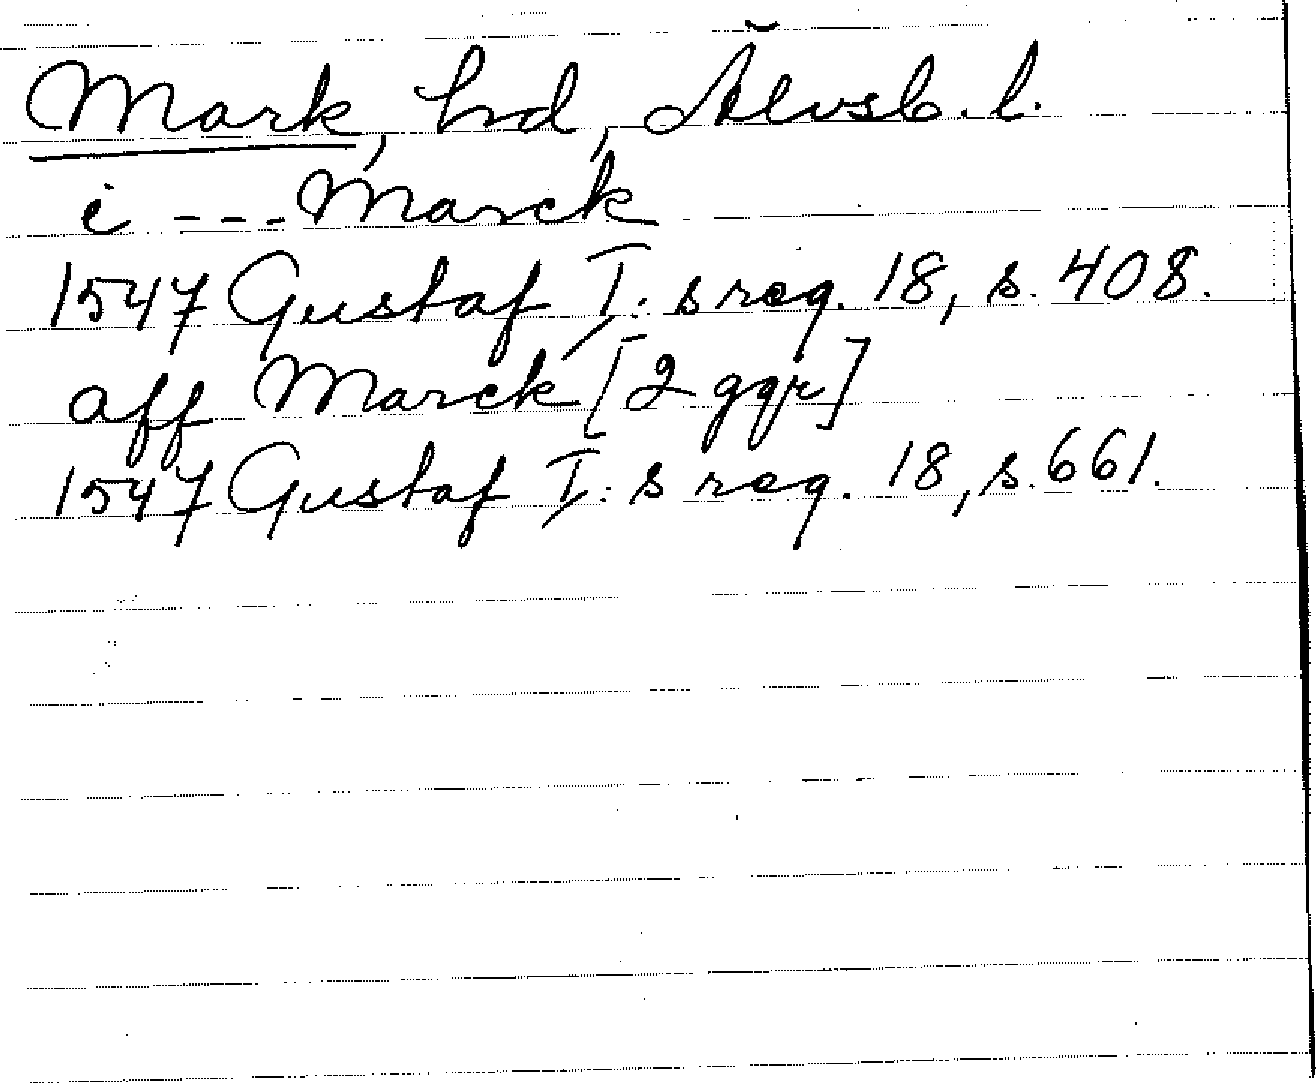 Mark, hd, Älvsb. l.
i --- Marck
1547 Gustaf I:s reg. 18, s. 408.
aff Marck [2 ggr]
1547 Gustaf I:s reg. 18, s. 661.